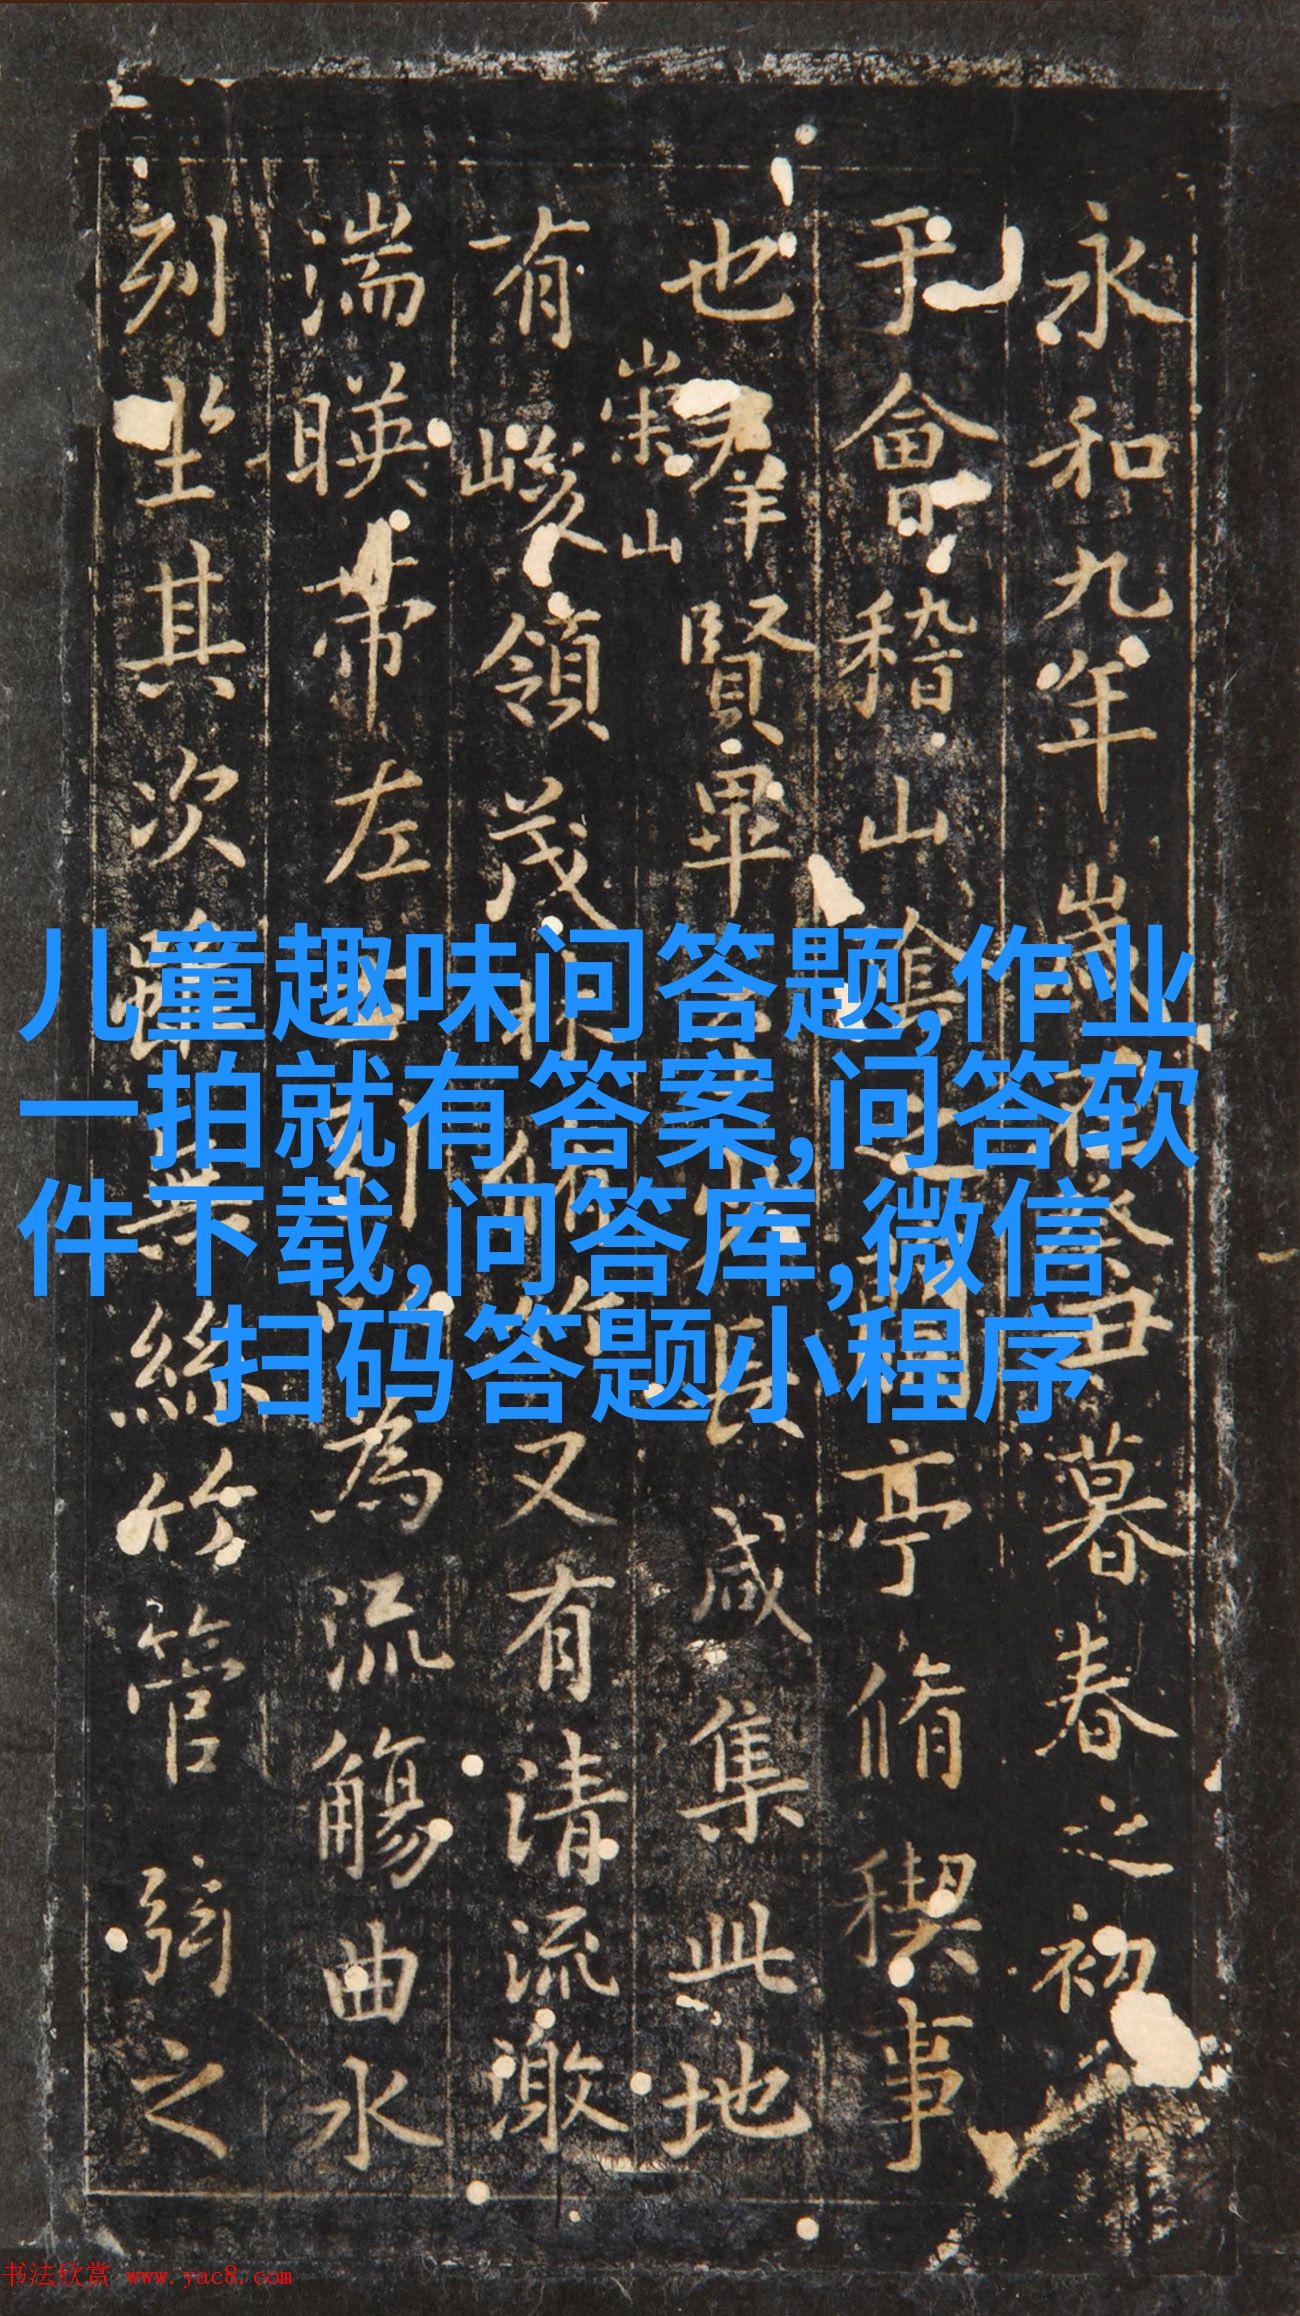 儿童趣味问答题,作业
一拍就有答案,问答软
件下载,问答库,微信
扫码答题小程序
永和九年歲在癸丑暮春之初
于會稽山陰之蘭亭脩稧事
也羣賢畢至少長咸集此地
崇山
有峻領茂林脩竹又有清流激
湍暎帶左右引以為流觴曲水
列坐其次雖無絲竹管弦之
书法欣赏 www.yac8.com